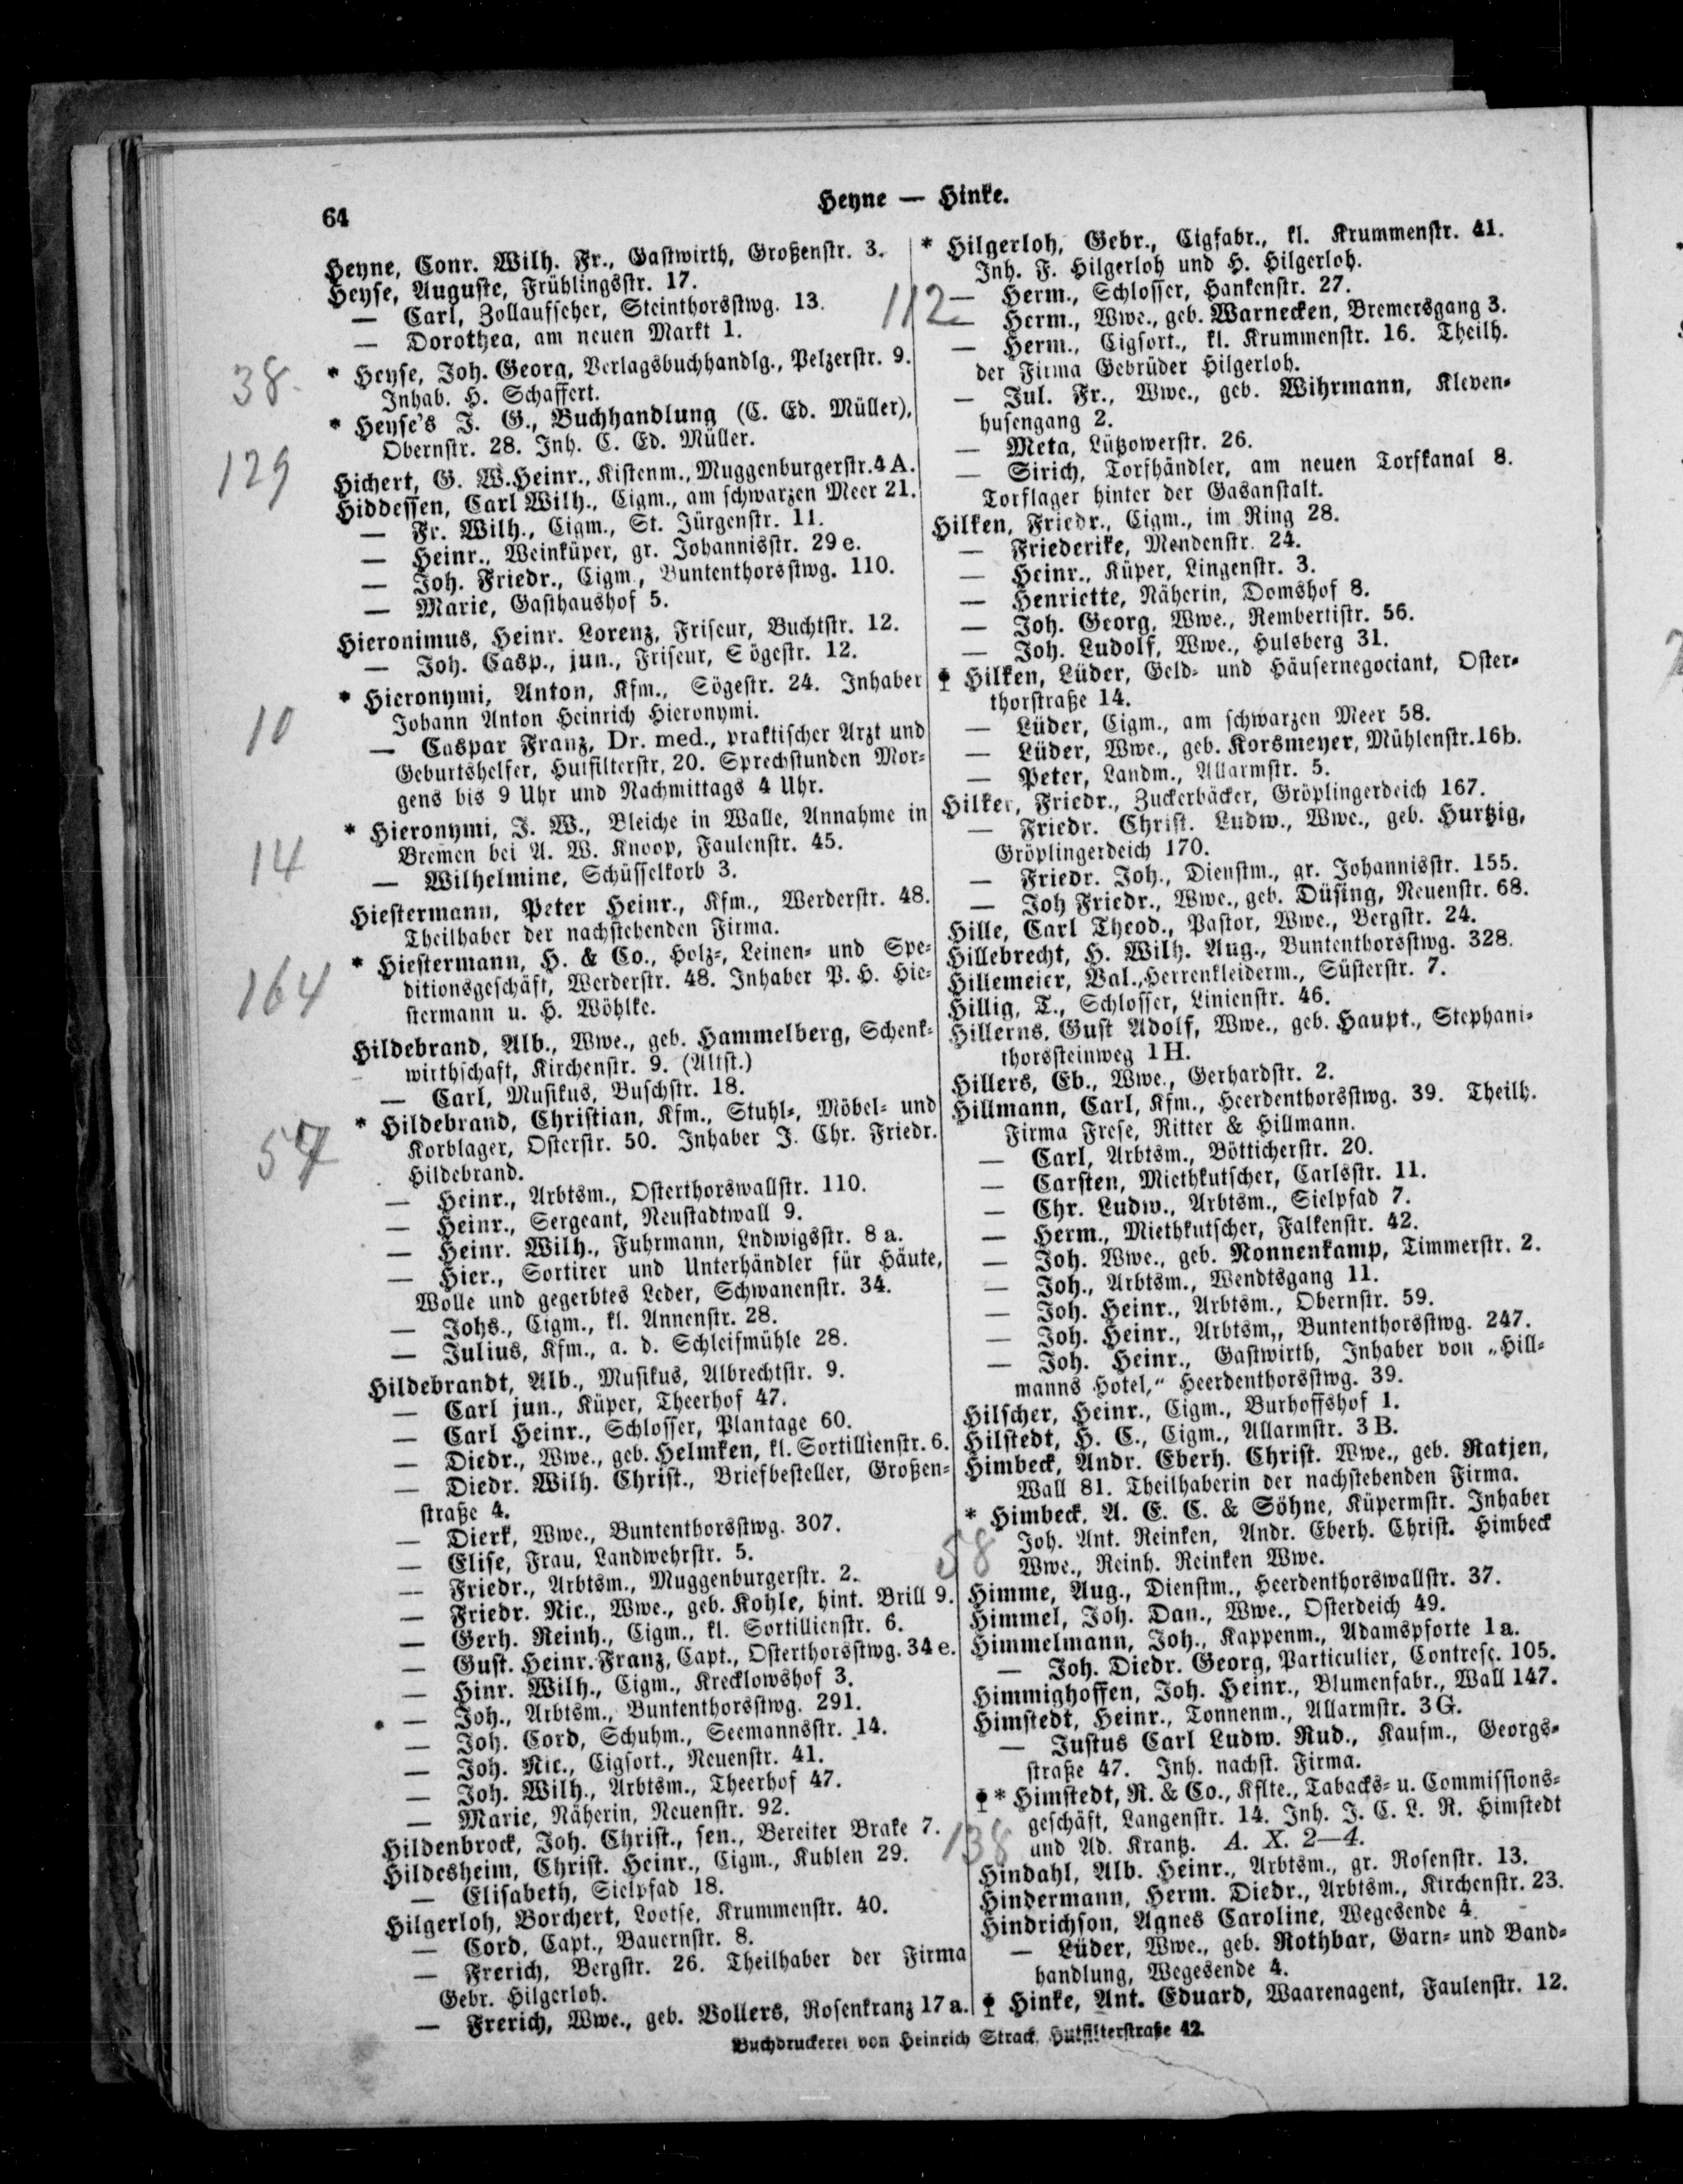 64
Heyne — Hinke.
Heyne, Conr. Wilh. Fr., Gastwirth, Großenstr. 3.
Heyse, Auguste, Frühlingsstr. 17.
— Carl, Zollaufseher, Steinthorsstwg. 13.
— Dorothea, am neuen Markt 1.
38
* Heyse, Joh. Georg, Verlagsbuchhandlg., Pelzerstr. 9.
Inhab. H. Schaffert.
* Heyse's J. G., Buchhandlung (C. Ed. Müller),
Obernstr. 28. Inh. C. Ed. Müller.
129
Hichert, G. W. Heinr., Kistenm., Muggenburgerstr. 4 A.
Hiddessen, Carl Wilh., Cigm., am schwarzen Meer 21.
— Fr. Wilh., Cigm., St. Jürgenstr. 11.
— Heinr., Weinküper, gr. Johannisstr. 29 e.
— Joh. Friedr., Cigm., Buntenthorsstwg. 110.
— Marie, Gasthaushof 5.
Hieronimus, Heinr. Lorenz, Friseur, Buchtstr. 12.
— Joh. Casp., jun., Friseur, Sögestr. 12.
* Hieronymi, Anton, Kfm., Sögestr. 24. Inhaber
10
Johann Anton Heinrich Hieronymi.
— Caspar Franz, Dr. med., praktischer Arzt und
Geburtshelfer, Hutfilterstr, 20. Sprechstunden Mor-
gens bis 9 Uhr und Nachmittags 4 Uhr.
* Hieronymi, J. W., Bleiche in Walle, Annahme in
14
Bremen bei A. W. Knoop, Faulenstr. 45.
— Wilhelmine, Schüsselkorb 3.
Hiestermann, Peter Heinr., Kfm., Werderstr. 48.
Theilhaber der nachstehenden Firma.
* Hiestermann, H. & Co., Holz-, Leinen- und Spe-
164
ditionsgeschäft, Werderstr. 48. Inhaber P. H. Hie-
stermann u. H. Wöhlke.
Hildebrand, Alb., Wwe., geb. Hammelberg, Schenk-
wirthschaft, Kirchenstr. 9. (Altst.)
— Carl, Musikus, Buschstr. 18.
* Hildebrand, Christian, Kfm., Stuhl-, Möbel- und
57
Korblager, Osterstr. 50. Inhaber J. Chr. Friedr.
Hildebrand.
— Heinr., Arbtsm., Osterthorswallstr. 110.
— Heinr., Sergeant, Neustadtwall 9.
— Heinr. Wilh., Fuhrmann, Lndwigsstr. 8 a.
— Hier., Sortirer und Unterhändler für Häute,
Wolle und gegerbtes Leder, Schwanenstr. 34.
— Johs., Cigm., kl. Annenstr. 28.
— Julius, Kfm., a. d. Schleifmühle 28.
Hildebrandt, Alb., Musikus, Albrechtstr. 9.
— Carl jun., Küper, Theerhof 47.
— Carl Heinr., Schlosser, Plantage 60.
— Diedr., Wwe., geb. Helmken, kl. Sortillienstr. 6.
— Diedr. Wilh. Christ., Briefbesteller, Großen-
straße 4.
— Dierk, Wwe., Buntenthorsstwg. 307.
— Elise, Frau, Landwehrstr. 5.
— Friedr., Arbtsm., Muggenburgerstr. 2.
— Friedr. Nic., Wwe., geb. Kohle, hint. Brill 9.
— Gerh. Reinh., Cigm., kl. Sortillienstr. 6.
— Gust. Heinr. Franz, Capt., Osterthorsstwg. 34 e.
— Hinr. Wilh., Cigm., Krecklowshof 3.
— Joh., Arbtsm., Buntenthorsstwg. 291.
— Joh. Cord, Schuhm., Seemannsstr. 14.
— Joh. Nic., Cigsort., Neuenstr. 41.
— Joh. Wilh., Arbtsm., Theerhof 47.
— Marie, Näherin, Neuenstr. 92.
Hildenbrock, Joh. Christ., sen., Bereiter Brake 7.
Hildesheim, Christ. Heinr., Cigm., Kuhlen 29.
— Elisabeth, Sielpfad 18.
Hilgerloh, Borchert, Lootse, Krummenstr. 40.
— Cord, Capt., Bauernstr. 8.
— Frerich, Bergstr. 26. Theilhaber der Firma
Gebr. Hilgerloh.
— Frerich, Wwe., geb. Vollers, Rosenkranz 17 a.
* Hilgerloh, Gebr., Cigfabr., kl. Krummenstr. 41.
Inh. F. Hilgerloh und H. Hilgerloh.
112
— Herm., Schlosser, Hankenstr. 27.
— Herm., Wwe., geb. Warnecken, Bremersgang 3.
— Herm., Cigsort., kl. Krummenstr. 16. Theilh.
der Firma Gebrüder Hilgerloh.
— Jul. Fr., Wwe., geb. Wihrmann, Kleven-
husengang 2.
— Meta, Lützowerstr. 26.
— Sirich, Torfhändler, am neuen Torfkanal 8.
Torflager hinter der Gasanstalt.
Hilken, Friedr., Cigm., im Ring 28.
— Friederike, Mendenstr. 24.
— Heinr., Küper, Lingenstr. 3.
— Henriette, Näherin, Domshof 8.
— Joh. Georg, Wwe., Rembertistr. 56.
— Joh. Ludolf, Wwe., Hulsberg 31.
Hilken, Lüder, Geld- und Häusernegociant, Oster-
thorstraße 14.
— Lüder, Cigm., am schwarzen Meer 58.
— Lüder, Wwe., geb. Korsmeyer, Mühlenstr. 16 b.
— Peter, Landm., Allarmstr. 5.
Hilker, Friedr., Zuckerbäcker, Gröplingerdeich 167.
— Friedr. Christ. Ludw., Wwe., geb. Hurtzig,
Gröplingerdeich 170.
— Friedr. Joh., Dienstm., gr. Johannisstr. 155.
— Joh Friedr., Wwe., geb. Düsing, Neuenstr. 68.
Hille, Carl Theod., Pastor, Wwe., Bergstr. 24.
Hillebrecht, H. Wilh. Aug., Buntenthorsstwg. 328.
Hillemeier, Val., Herrenkleiderm., Süsterstr. 7.
Hillig, T., Schlosser, Linienstr. 46.
Hillerns, Gust Adolf, Wwe., geb. Haupt., Stephani-
thorssteinweg 1 H.
Hillers, Eb., Wwe., Gerhardstr. 2.
Hillmann, Carl, Kfm., Heerdenthorsstwg. 39. Theilh.
Firma Frese, Ritter & Hillmann.
— Carl, Arbtsm., Bötticherstr. 20.
— Carsten, Miethkutscher, Carlsstr. 11.
— Chr. Ludw., Arbtsm., Sielpfad 7.
— Herm., Miethkutscher, Falkenstr. 42.
— Joh. Wwe., geb. Nonnenkamp, Timmerstr. 2.
— Joh., Arbtsm., Wendtsgang 11.
— Joh. Heinr., Arbtsm., Obernstr. 59.
— Joh. Heinr., Arbtsm,, Buntenthorsstwg. 247.
— Joh. Heinr., Gastwirth, Inhaber von „Hill-
manns Hotel,“ Heerdenthorsstwg. 39.
Hilscher, Heinr., Cigm., Burhoffshof 1.
Hilstedt, H. C., Cigm., Allarmstr. 3 B.
Himbeck, Andr. Eberh. Christ. Wwe., geb. Ratjen,
Wall 81. Theilhaberin der nachstehenden Firma.
* Himbeck, A. E. C. & Söhne, Küpermstr. Inhaber
58
Joh. Ant. Reinken, Andr. Eberh. Christ. Himbeck
Wwe., Reinh. Reinken Wwe.
Himme, Aug., Dienstm., Heerdenthorswallstr. 37.
Himmel, Joh. Dan., Wwe., Osterdeich 49.
Himmelmann, Joh., Kappenm., Adamspforte 1 a.
— Joh. Diedr. Georg, Particulier, Contresc. 105.
Himmighoffen, Joh. Heinr., Blumenfabr., Wall 147.
Himstedt, Heinr., Tonnenm., Allarmstr. 3 G.
— Justus Carl Ludw. Rud., Kaufm., Georgs-
straße 47. Inh. nachst. Firma.
* Himstedt, R. & Co., Kflte., Tabacks- u. Commissions-
geschäft, Langenstr. 14. Inh. J. C. L. R. Himstedt
138
und Ad. Krantz. A. X. 2—4.
Hindahl, Alb. Heinr., Arbtsm., gr. Rosenstr. 13.
Hindermann, Herm. Diedr., Arbtsm., Kirchenstr. 23.
Hindrichson, Agnes Caroline, Wegesende 4.
— Lüder, Wwe., geb. Rothbar, Garn- und Band-
handlung, Wegesende 4.
Hinke, Ant. Eduard, Waarenagent, Faulenstr. 12.
Buchdruckerei von Heinrich Strack, Hutfilterstraße 42.